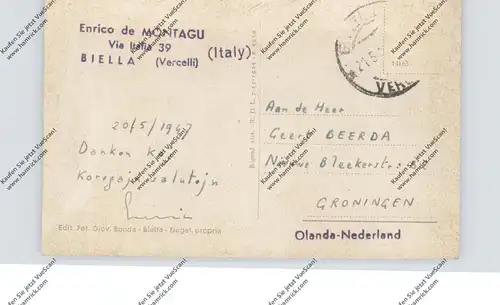 Enrico de MONTAGU
Via Italia 39
BIELLA (Vercelli)
(Italy)
20/5/1947
Dankon
Koregajn salutojn
Edit. Fot. Giov. Bonda - Biella - Negat. propria
14163
21.5
Aan de Heer
Geert BEERDA
Nieuwe Bleekerstr.
GRONINGEN
Olanda-Nederland
Kaufen Sie jetzt VueScan!
www.hamrick.com